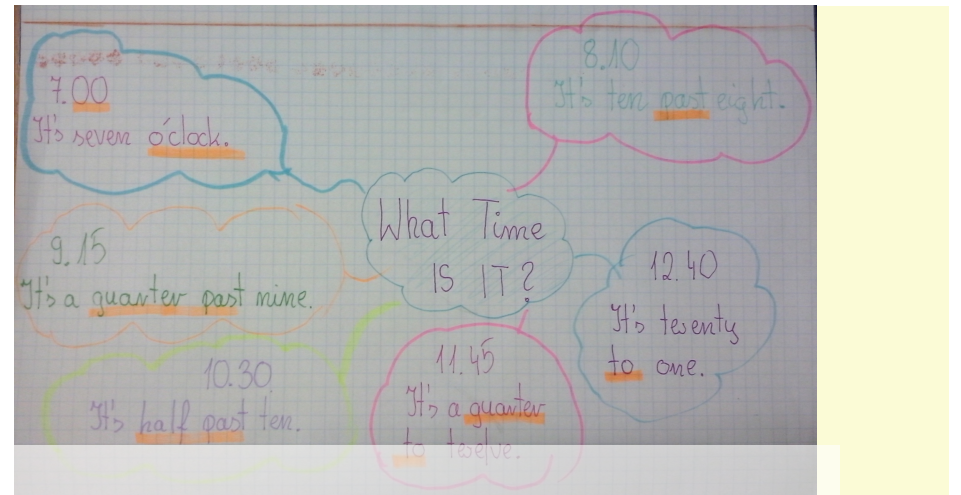 7.00
It's seven o'clock.
8.10
It's ten past eight.
What Time
IS IT?
9.15
It's a quarter past nine.
12.40
It's twenty
to one.
10.30
It's half past ten.
11.45
It's a quarter
to twelve.